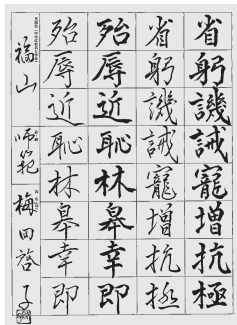 省躬譏誡寵増抗極
省躬譏誡寵増抗極
殆辱近恥林皐幸即
殆辱近恥林皐幸即
福山 師範 梅田啓子